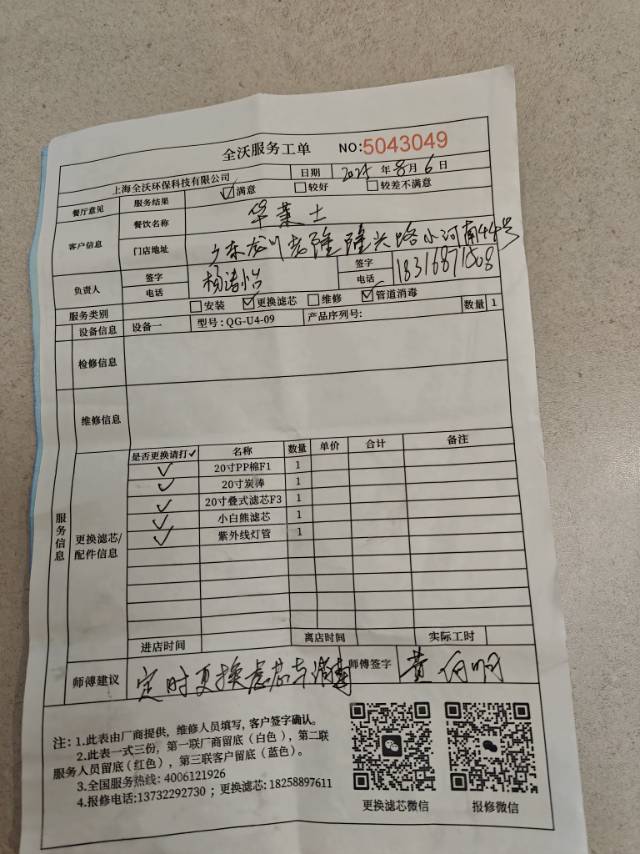 全沃服务工单 NO:5043049
上海全沃环保科技有限公司 日期 2025年8月6日
餐厅意见 服务结果 ☑满意 □较好 □较差不满意
客户信息 餐饮名称 华莱士
门店地址 广东龙川老隆隆兴路小河南44号
负责人 签字 杨诸怡 签字
电话 电话 18316871508
服务类别 □安装 ☑更换滤芯 □维修 ☑管道消毒
设备信息 设备一 型号：QG-U4-09 产品序列号： 数量 1
检修信息
维修信息
服务信息
更换滤芯/配件信息
是否更换请打✓ 名称 数量 单价 合计 备注
✓ 20寸PP棉F1 1
✓ 20寸炭棒 1
✓ 20寸叠式滤芯F3 1
✓ 小白熊滤芯 1
✓ 紫外线灯管 1
进店时间 离店时间 实际工时
师傅建议 定时更换滤芯与消毒 师傅签字 黄
注：1.此表由厂商提供，维修人员填写，客户签字确认。
2.此表一式三份，第一联厂商留底（白色），第二联
服务人员留底（红色），第三联客户留底（蓝色）。
3.全国服务热线: 4006121926
4.报修电话:13732292730；更换滤芯: 18258897611
更换滤芯微信 报修微信